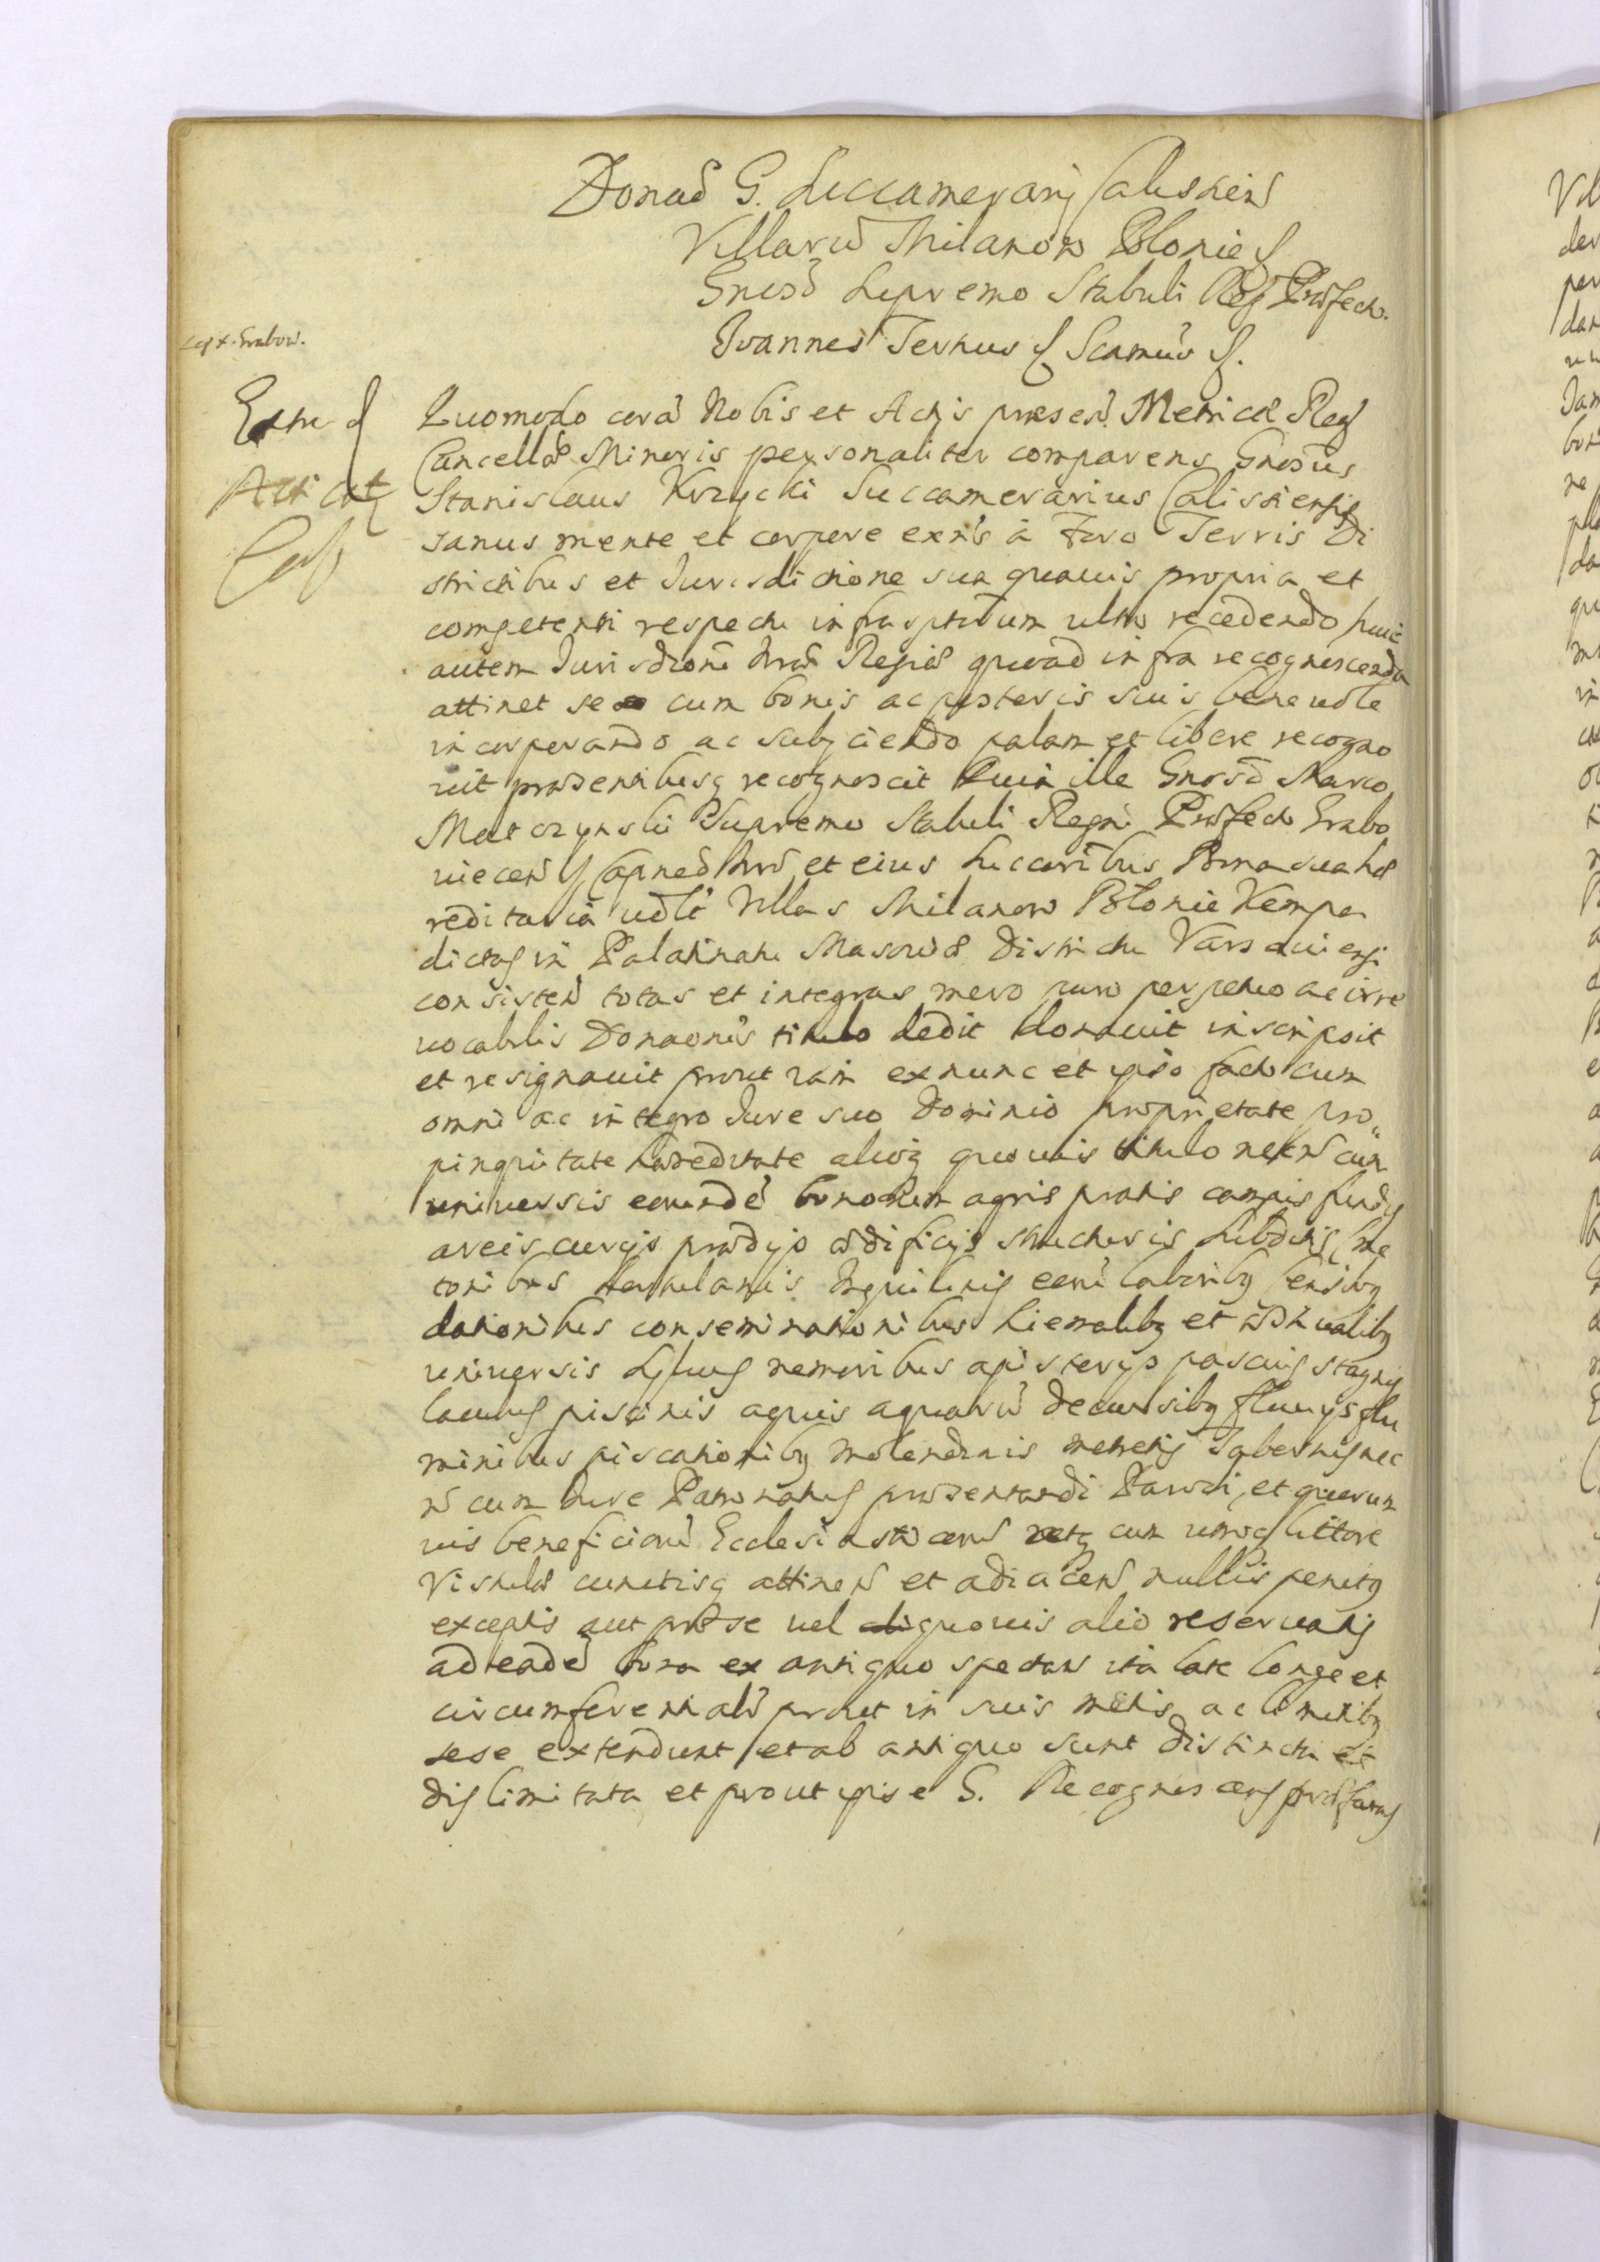 Donaõ G. Succamerarij Calishien̄
Villarū Milanow Polonie
Gnosō Supremo Stabuli Reg Præfecto.
Joannes Tertius Scamūs
Cap x. Grabow.
Extra
Quomodo corā Nobis et Actis præsen̄. Metricæ Reg
Cancellæ Minoris personaliter comparens Gnosūs
Stanislaus Krzycki Succamerarius Calissiensis
sanus mente et corpore exn̄s à Foro Terris Di
strictibus et Jurisdictione sua quauis propria et
competenti respectu infrasptorum ultro recedendo huic
autem Jurisdioni Nræ Regiæ quoad infra recognoscenda
attinet se cum bonis ac posteris suis beneuole
incorporando ac subjciendo palam et libere recogno
uit præsentibusq recognoscit Quia ille Gnosō Marco
Matczynski Supremo Stabuli Regni Præfecto Grabo
uiecen̄ Capneo Nro et eius Succoribus Bona sua hæ
reditaria udlt Villas Milanow Polonie Kempa
dictas in Palatinatu Masouiæ Districtu Varsauiensi
consisten̄ totas et integras mero puro perpetuo ac irre
uocabilis Donaonis titulo dedit donauit inscripsit
et resignauit prout iam exnunc et ipso facto cum
omni ac integro Jure suo Dominio proprietate pro
pinquitate hæreditate alioq quouis titulo necn̄ cum
uniuersis eorundē bonorum agris pratis campis fundis
areis curijs prædijs ædificijs structuris Subditis Cme
tonibus Hortulanis Inquilinis eorū laboribq Censibq
dationibus conseminationibus hiemalibq et æstiualibq
uniuersis Syluis nemoribus apisterijs pascuis stagnis
lacubus piscinis aquis aquarū decursibq fluuijs flu
minibus piscationibq molendinis metretis Tabernis nec
n̄ cum Jure Patronatus præsentandi Parochi, et quorum
uis beneficiorū Ecclesiasticorū cum utroq littore
Vistulæ cunctisq attinen̄ et adiacen̄ nullis penitq
exceptis aut pro se uel quouis alio reseruatis
ad eadē bona ex antiquo spectan̄ ita late longe et
circumferentialr prout in suis metis ac limitibq
sese extendunt et ab antiquo sunt distincta et
dislimitata et prout ipse G. Recognoscens præfatas